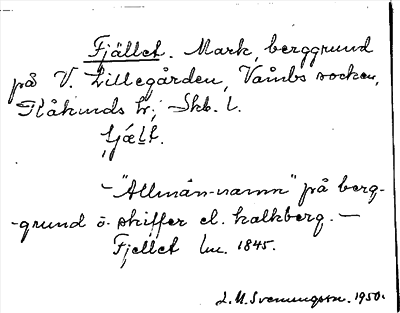 Fjället. Mark, berggrund
på V. Lillegården, Våmbs socken,
Kåkinds hr; Skb. l.
fjælt.
– "Allmän-namn" på berg-
-grund o. skiffer el. kalkberg. –
Fjellet lm. 1845.
L.M. Svenungsson. 1950.